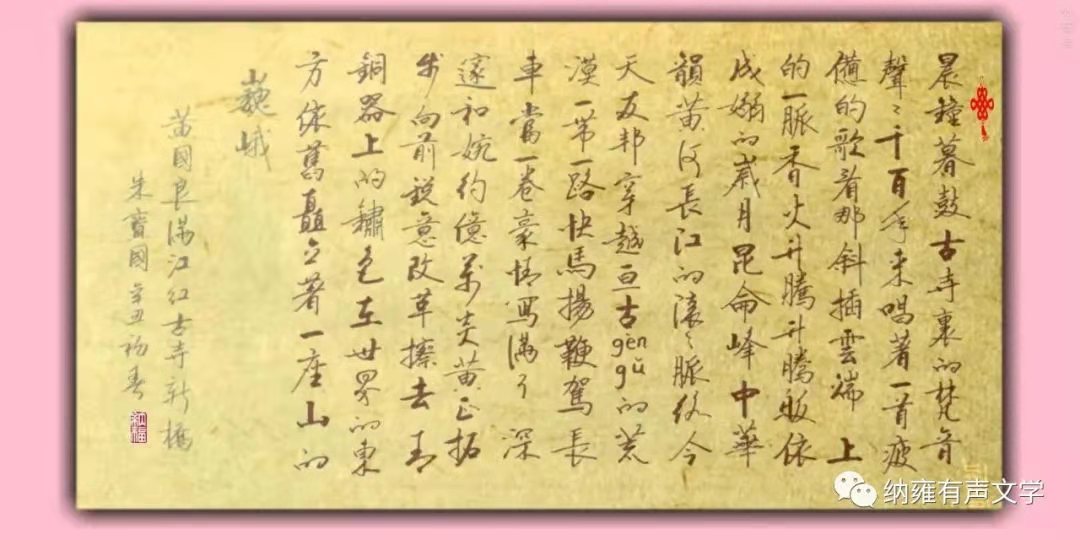 晨鐘暮鼓古寺裏的梵音
聲聲千百年来唱著一首疲
憊的歌看那斜插雲端上
的一脈香火升騰升騰皈依
成嫋的嵗月昆侖峰中華
韻黄河長江的滚滚脈络今
天友邦穿越亘古gèn gǔ的荒
漠一带一路快馬揚鞭駕長
車當一卷豪情寫滿了深
邃和婉约億萬炎黄正拓
步向前锐意改革擦去青
銅器上的鏽色在世界的東
方依舊矗立著一座山的
巍峨
黄國良满江红古寺新
朱寶國辛丑初春
纳雍有声文学